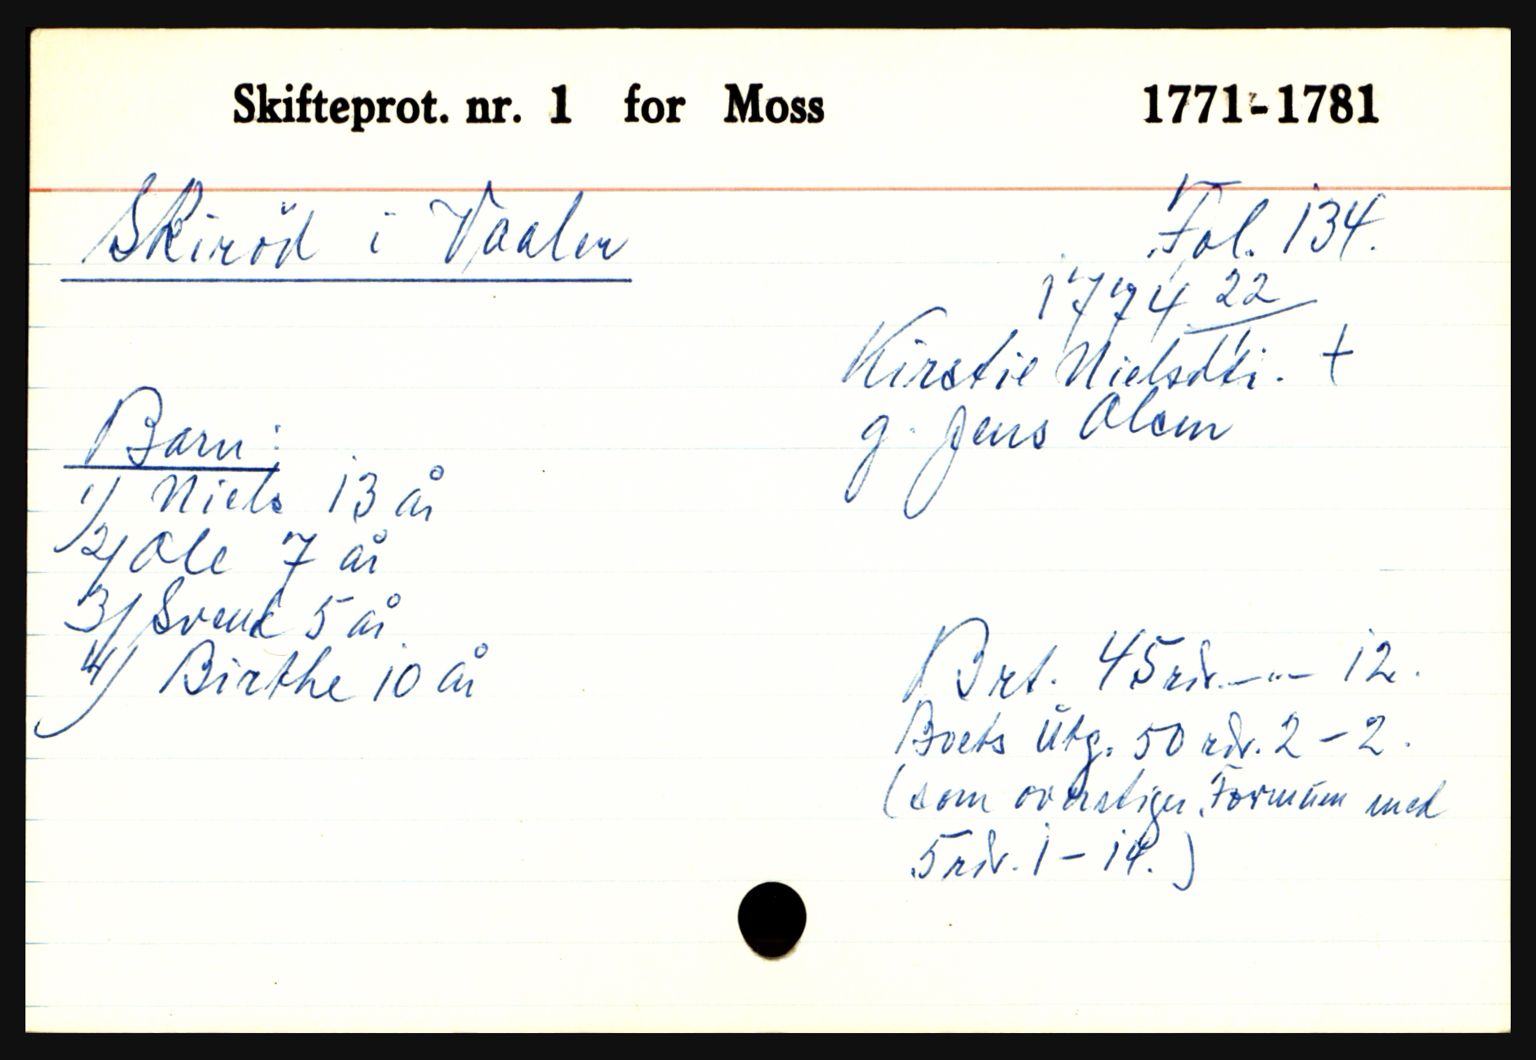 Skifteprot. nr. 1 for Moss 1771-1781
Skiröd i Vaaler
Fol. 134.
1774 22/
Kirstie Nielsdtr. +
g. Jens Olsen
Barn:
1) Niels 13 år
2) Ole 7 år
3) Svend 5 år
4) Birthe 10 år
Brt. 45 rdr. - " - 12.
Boets Utg. 50 rdr. 2 - 2.
(som overstiger Formuen med
5 rdr. 1 - 14.)